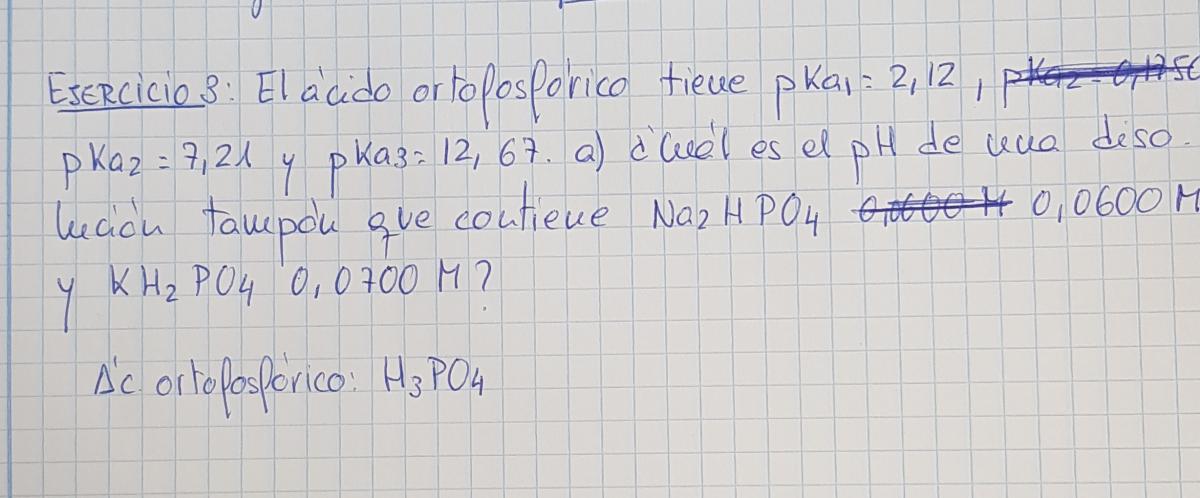 Ejercicio 3: El ácido ortofosfórico tiene pKa1 = 2,12,
pKa2 = 7,21 y pKa3 = 12,67. a) ¿Cuál es el pH de una diso-
lución tampón que contiene Na2HPO4 0,0600 M 0,0600 M
y KH2PO4 0,0700 M?
Ác ortofosfórico: H3PO4